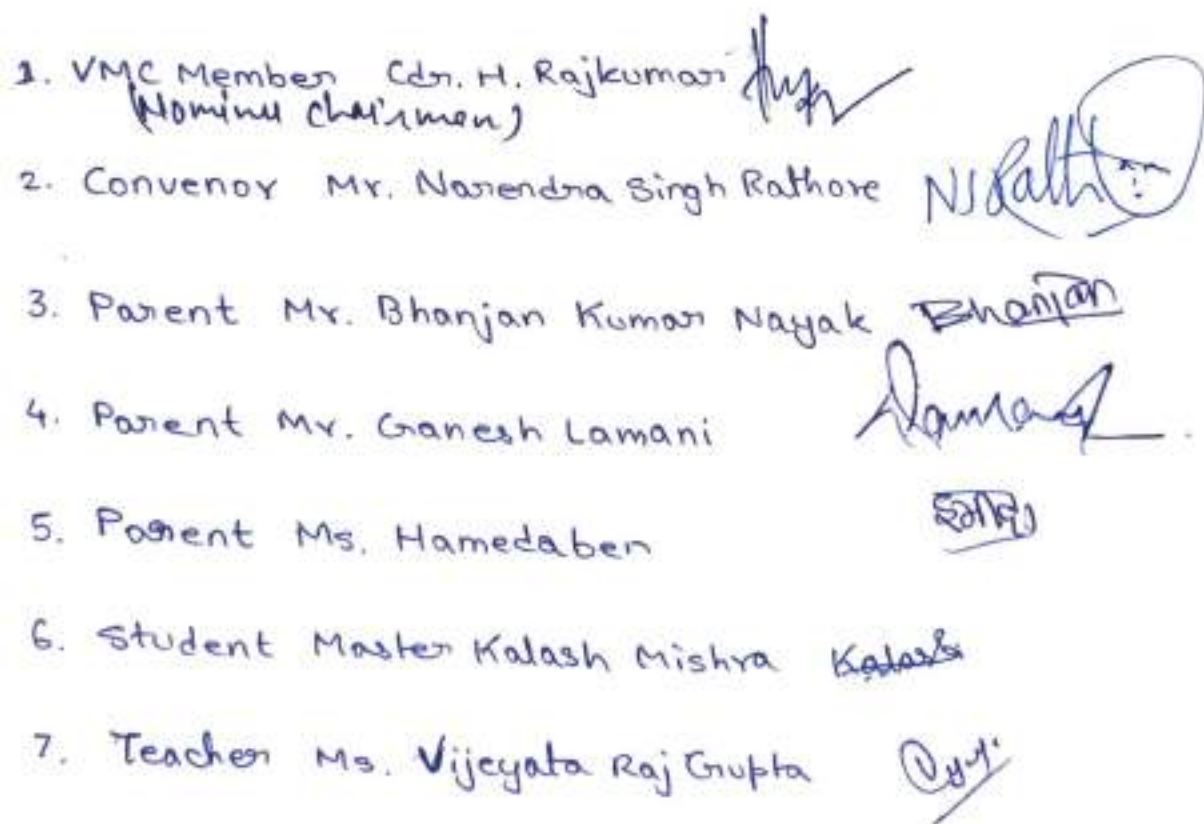 1. VMC Member Cdr. H. Rajkumar
(Nominee Chairman)
2. Convenor Mr. Narendra Singh Rathore NSRath
3. Parent Mr. Bhanjan Kumar Nayak Bhanjan
4. Parent Mr. Ganesh Lamani
5. Parent Ms. Hamedaben
6. Student Master Kalash Mishra Kalash
7. Teacher Ms. Vijeyata Raj Gupta